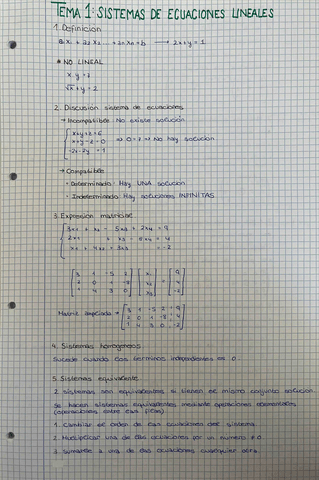 TEMA 1: SISTEMAS DE ECUACIONES LINEALES
1. Definición
a₁x₁ + a₂x₂ ... + anxn = b → 2x + y = 1
* NO LINEAL
x·y = 7
√x + y = 2
2. Discusión sistema de ecuaciones
→ Incompatible No existe solución
⇒ No hay solución
-2x-2y = 1
→ Compatible
• Determinado: Hay UNA solución
• Indeterminado: Hay soluciones INFINITAS
3. Expresión matricial
3x1 + x2 - 5x3 + 2x4 = 9
x1 + 4x2 + 3x3 = -2
3 1 -5 2 x1 9
2 0 1 -8 4
1 4 3 0 x3 -2
Matriz Ampliada → 3 1 -5 2 9
2 0 1 -8 4
1 4 3 0 -2
4. Sistemas homogéneos
Sucede cuando los términos independientes es 0.
5. Sistemas equivalente
2 sistemas son equivalentes si tienen el mismo conjunto solución.
Se hacen sistemas equivalentes mediante operaciones elementales
(operaciones entre las filas)
1. Cambiar el orden de las ecuaciones del sistema.
2. Multiplicar una de las ecuaciones por un número ≠ 0
3. Sumarle a una de las ecuaciones cualquier otra.